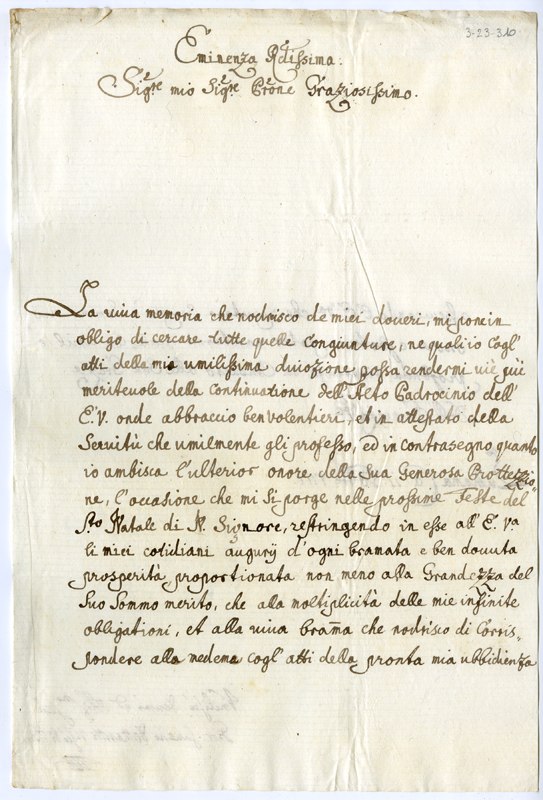 3-23-310
Eminenza Rdissima.
Sigre mio Sigre Prone Graziosissimo.
La viua memoria che nodrisco de miei doueri, mi pone in
obligo di cercare tutte quelle congiunture, ne quali io cogl'
atti della mia umilissima diuozione possa rendermi uiè più
meriteuole della continuazione dell'Alto Padrocinio dell'
E.V. onde abbraccio ben volentieri, et in attestato della
Seruitù che umilmente gli professo, ed in contrasegno quanto
io ambisca l'ulterior onore della Sua Generosa Prottezzio
ne, l'occasione che mi si porge nelle prossime Feste del
Sto Natale di N. Signore, restringendo in esse all'E.Va
li miei cotidiani augurij d'ogni bramata e ben douuta
prosperità proportionata non meno alla Grandezza del
Suo Sommo merito, che alla moltiplicità delle mie infinite
obligationi, et alla uiua brama che nodrisco di Corris=
pondere alla medema cogl'atti della pronta mia ubbidienza